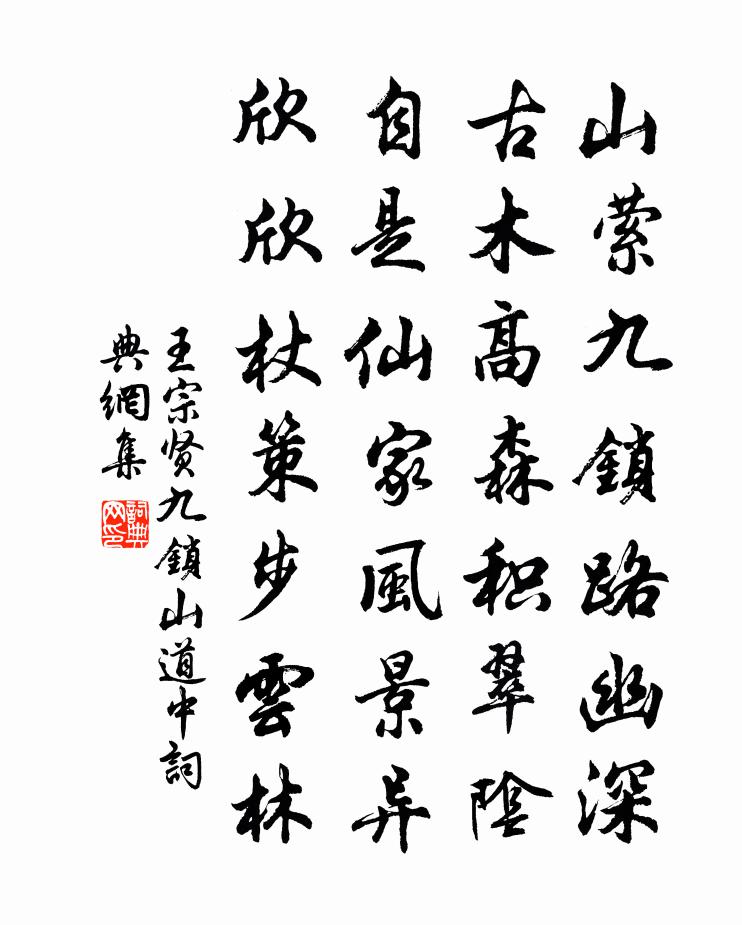 山萦九鎖路幽深
古木高森积翠陰
自是仙家風景异
欣欣杖策步雲林
王宗贤九鎖山道中詞
典網集
詞典
网印